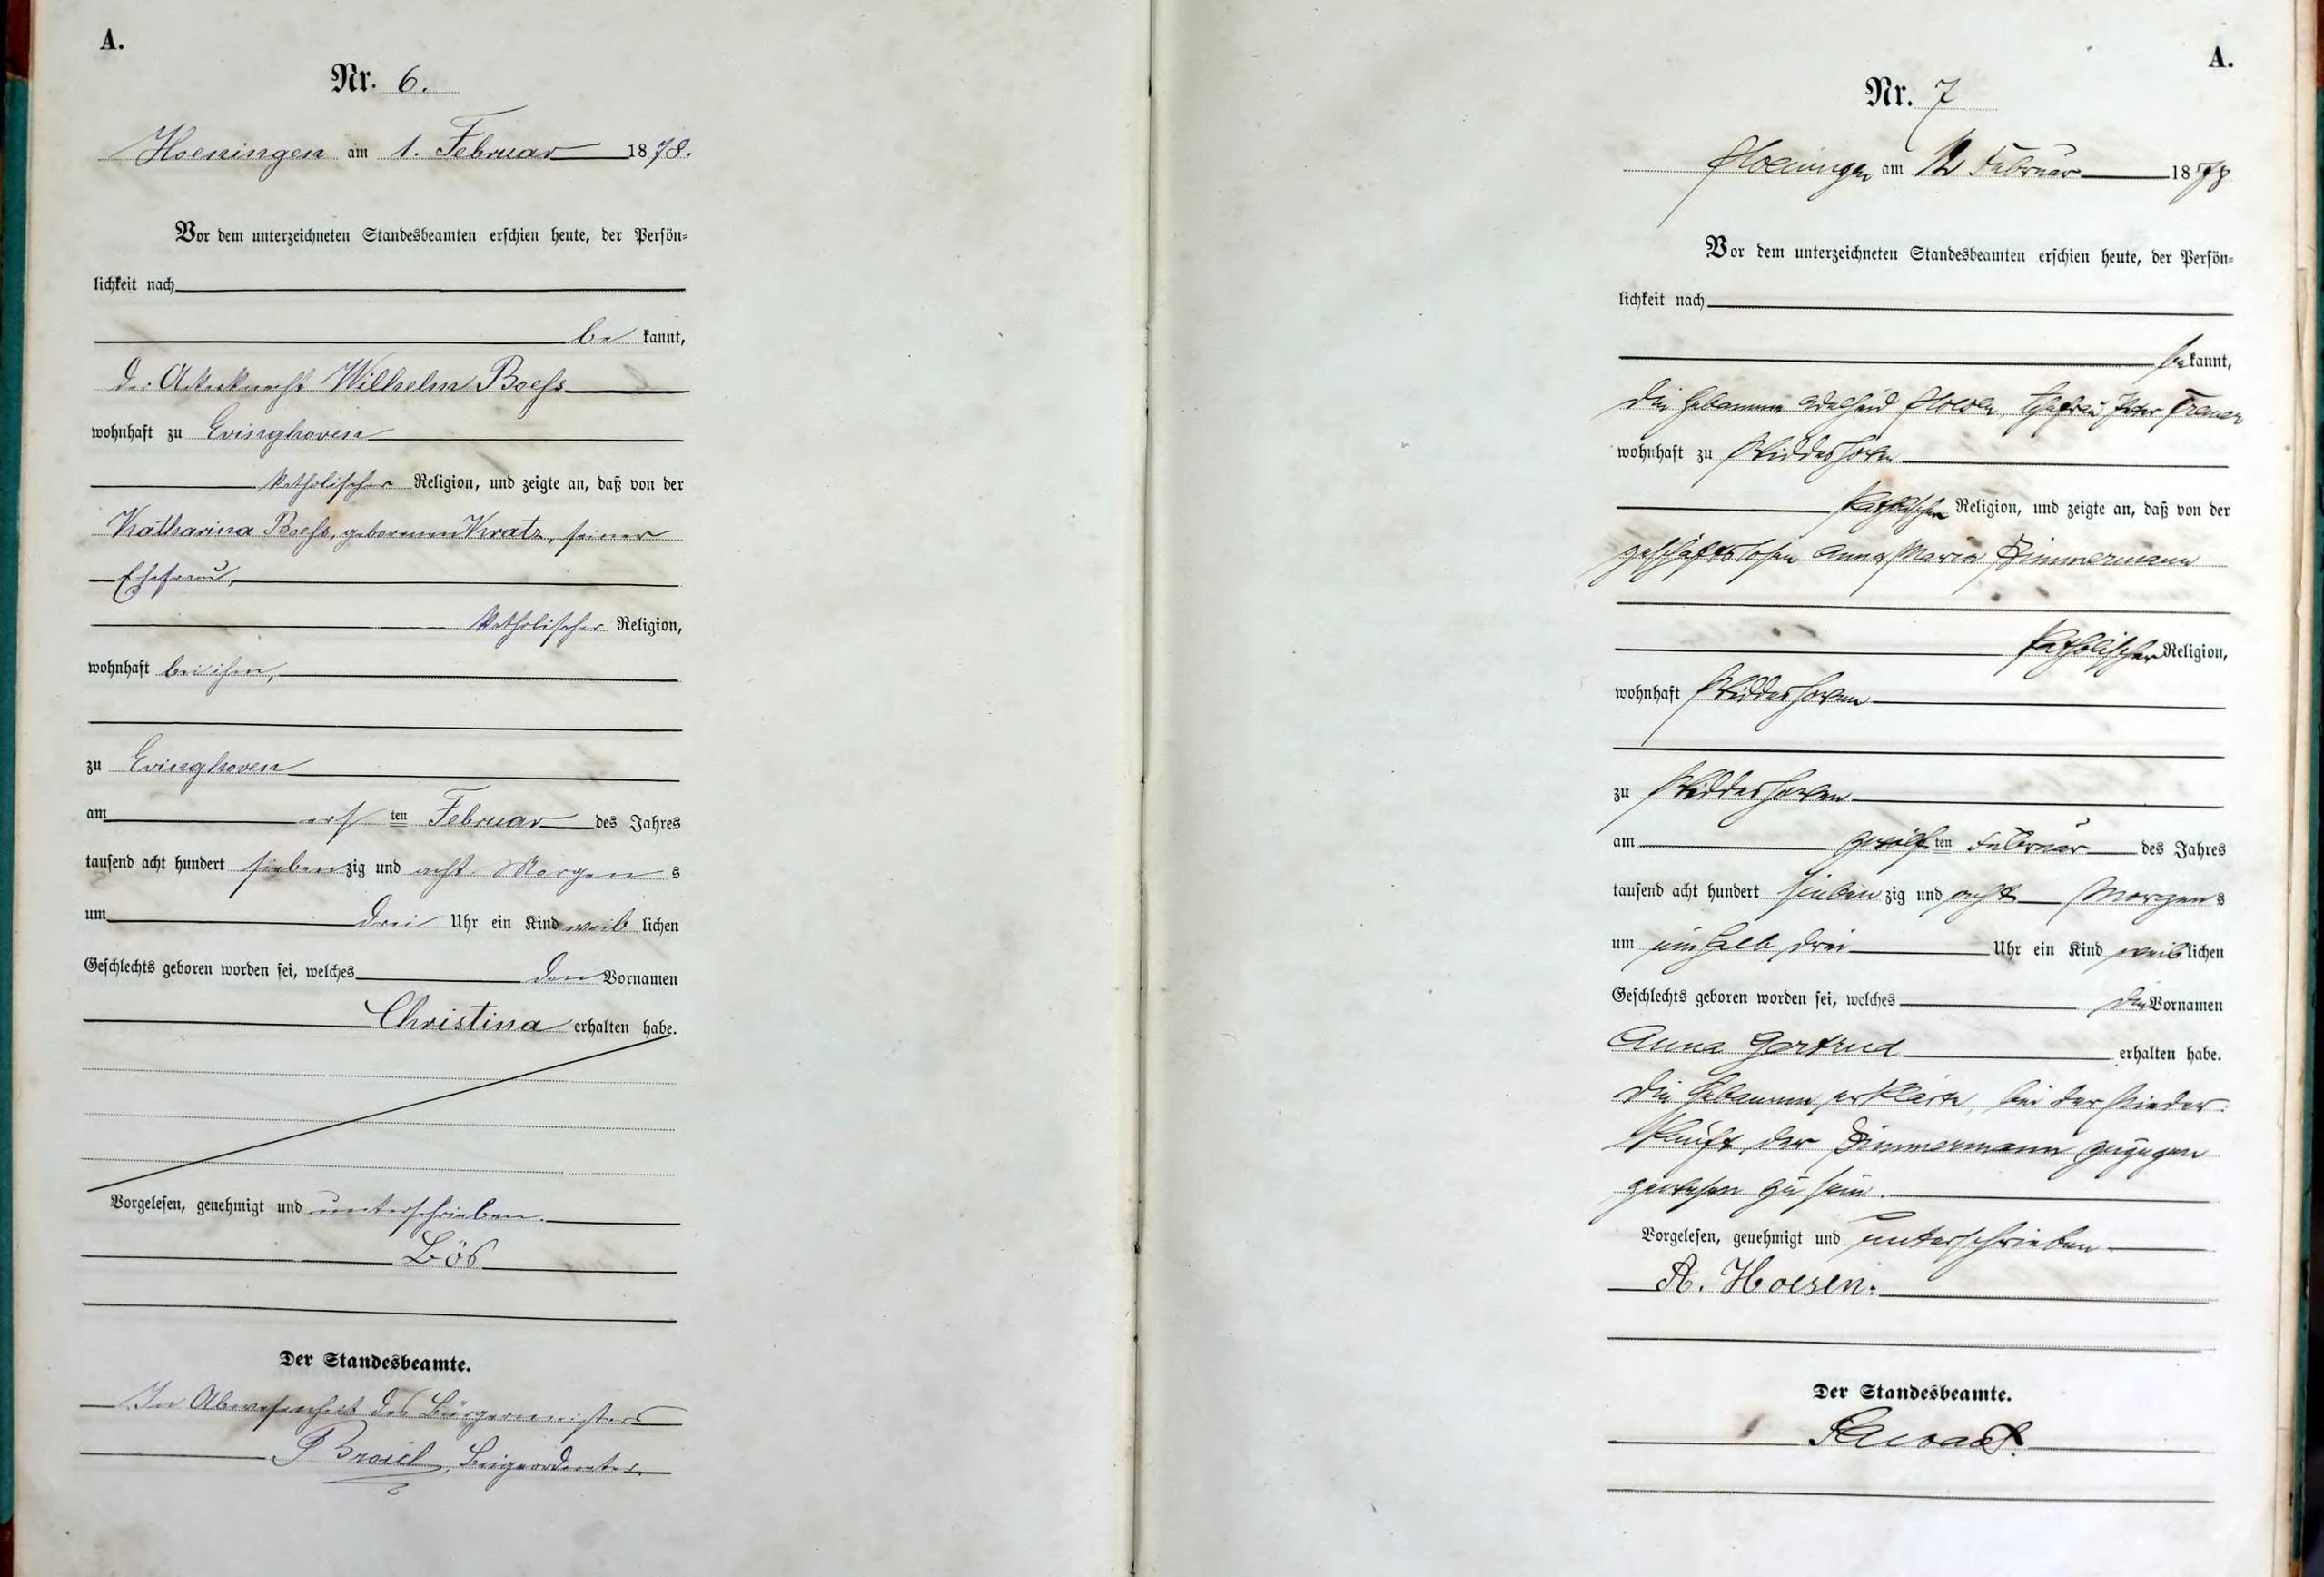 A.
Nr. 6.
Hoeningen am 1. Februar 1878.
Vor dem unterzeichneten Standesbeamten erschien heute, der Persön-
lichkeit nach
be kannt,
der Ackerknecht Wilhelm Boehs
wohnhaft zu Evinghoven
katholischer Religion, und zeigte an, daß von der
Katharina Boehs, geborenen Kratz, seiner
Ehefrau,
katholischer Religion,
wohnhaft bei ihm,
zu Evinghoven
am ersten Februar des Jahres
tausend acht hundert siebenzig und acht Morgens
um drei Uhr ein Kind weiblichen
Geschlechts geboren worden sei, welches den Vornamen
Christina erhalten habe.
Vorgelesen, genehmigt und unterschrieben.
Bös
Der Standesbeamte.
In Abwesenheit des Bürgermeisters
P Broich, Beigeordneter.
A.
Nr. 7
Hoeningen am 12 Februar 1878
Vor dem unterzeichneten Standesbeamten erschien heute, der Persön-
lichkeit nach
bekannt,
die Hebamme Adelheid Hoesen Ehefrau Peter
wohnhaft zu Widdeshoven
katholischer Religion, und zeigte an, daß von der
geschäftslosen Anna Maria Zimmermann
katholischer Religion,
wohnhaft Widdeshoven
zu Widdeshoven
am zwölften Februar des Jahres
tausend acht hundert siebenzig und acht Morgens
um einhalb drei Uhr ein Kind weiblichen
Geschlechts geboren worden sei, welches die Vornamen
Anna Gertrud erhalten habe.
Die Hebamme erklärte, bei der Nieder:
kunft der Zimmermann zugegen
gewesen zu sein.
Vorgelesen, genehmigt und unterschrieben
A. Hoesen.
Der Standesbeamte.